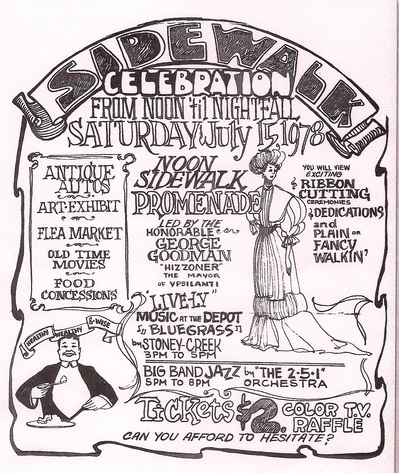 SIDEWALK
CELEBRATION
FROM NOON 'til NIGHTFALL
SATURDAY July 15, 1978
ANTIQUE
AUTOS
ART EXHIBIT
FLEA MARKET
OLD TIME
MOVIES
FOOD
CONCESSIONS
NOON
SIDEWALK
PROMENADE
LED BY THE
HONORABLE
GEORGE
GOODMAN
"HIZZONER"
THE MAYOR
OF YPSILANTI
YOU WILL VIEW
EXCITING
RIBBON
CUTTING
CEREMONIES
& DEDICATIONS
and
PLAIN or
FANCY
WALKIN'
"LIVE-LY"
MUSIC AT THE DEPOT
"BLUEGRASS"
by STONEY CREEK
3PM TO 5PM
BIG BAND JAZZ by "THE 2·5·1"
5PM TO 8PM ORCHESTRA
HEALTHY WEALTHY & WISE
TICKETS $2. COLOR T.V.
RAFFLE
CAN YOU AFFORD TO HESITATE?